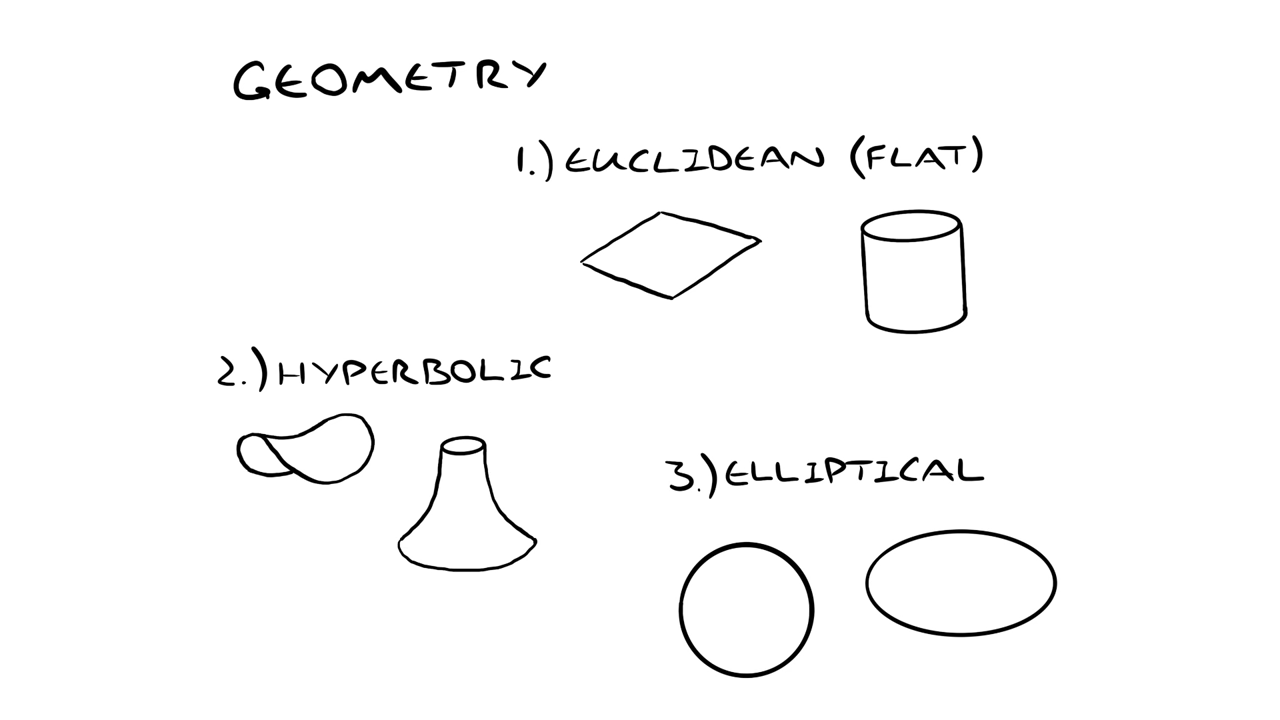 GEOMETRY
1.) EUCLIDEAN (FLAT)
2.) HYPERBOLIC
3.) ELLIPTICAL